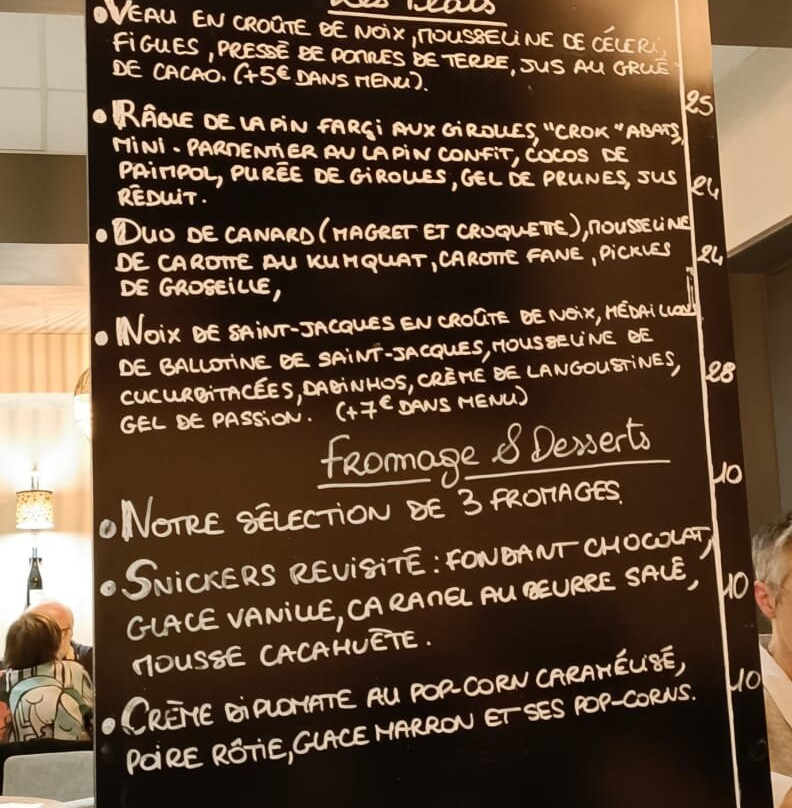 Les Plats
• VEAU EN CROÛTE DE NOIX, MOUSSELINE DE CÉLERI,
FIGUES, PRESSÉ DE POMMES DE TERRE, JUS AU GRUÉ
DE CACAO. (+5€ DANS MENU).
25
• RÂBLE DE LAPIN FARÇI AUX GIROLLES, "CROK" ABATS,
MINI-PARMENTIER AU LAPIN CONFIT, COCOS DE
PAIMPOL, PURÉE DE GIROLLES, GEL DE PRUNES, JUS 24
RÉDUIT.
• DUO DE CANARD (MAGRET ET CROQUETE), MOUSSELINE
DE CAROTTE AU KUMQUAT, CAROTTE FANE, PICKLES 24
DE GROSEILLE,
• NOIX DE SAINT-JACQUES EN CROÛTE DE NOIX, MÉDAILLON
DE BALLOTINE DE SAINT-JACQUES, MOUSSELINE DE
CUCURBITACÉES, DADINHOS, CRÈME DE LANGOUSTINES, 28
GEL DE PASSION. (+7€ DANS MENU)
Fromage & Desserts
• NOTRE SÉLECTION DE 3 FROMAGES. 10
• SNICKERS REVISITÉ : FONDANT CHOCOLAT,
GLACE VANILLE, CARAMEL AU BEURRE SALÉ, 10
MOUSSE CACAHUÈTE.
• CRÈME DIPLOMATE AU POP-CORN CARAMÉLISÉ, 10
POIRE RÔTIE, GLACE MARRON ET SES POP-CORNS.